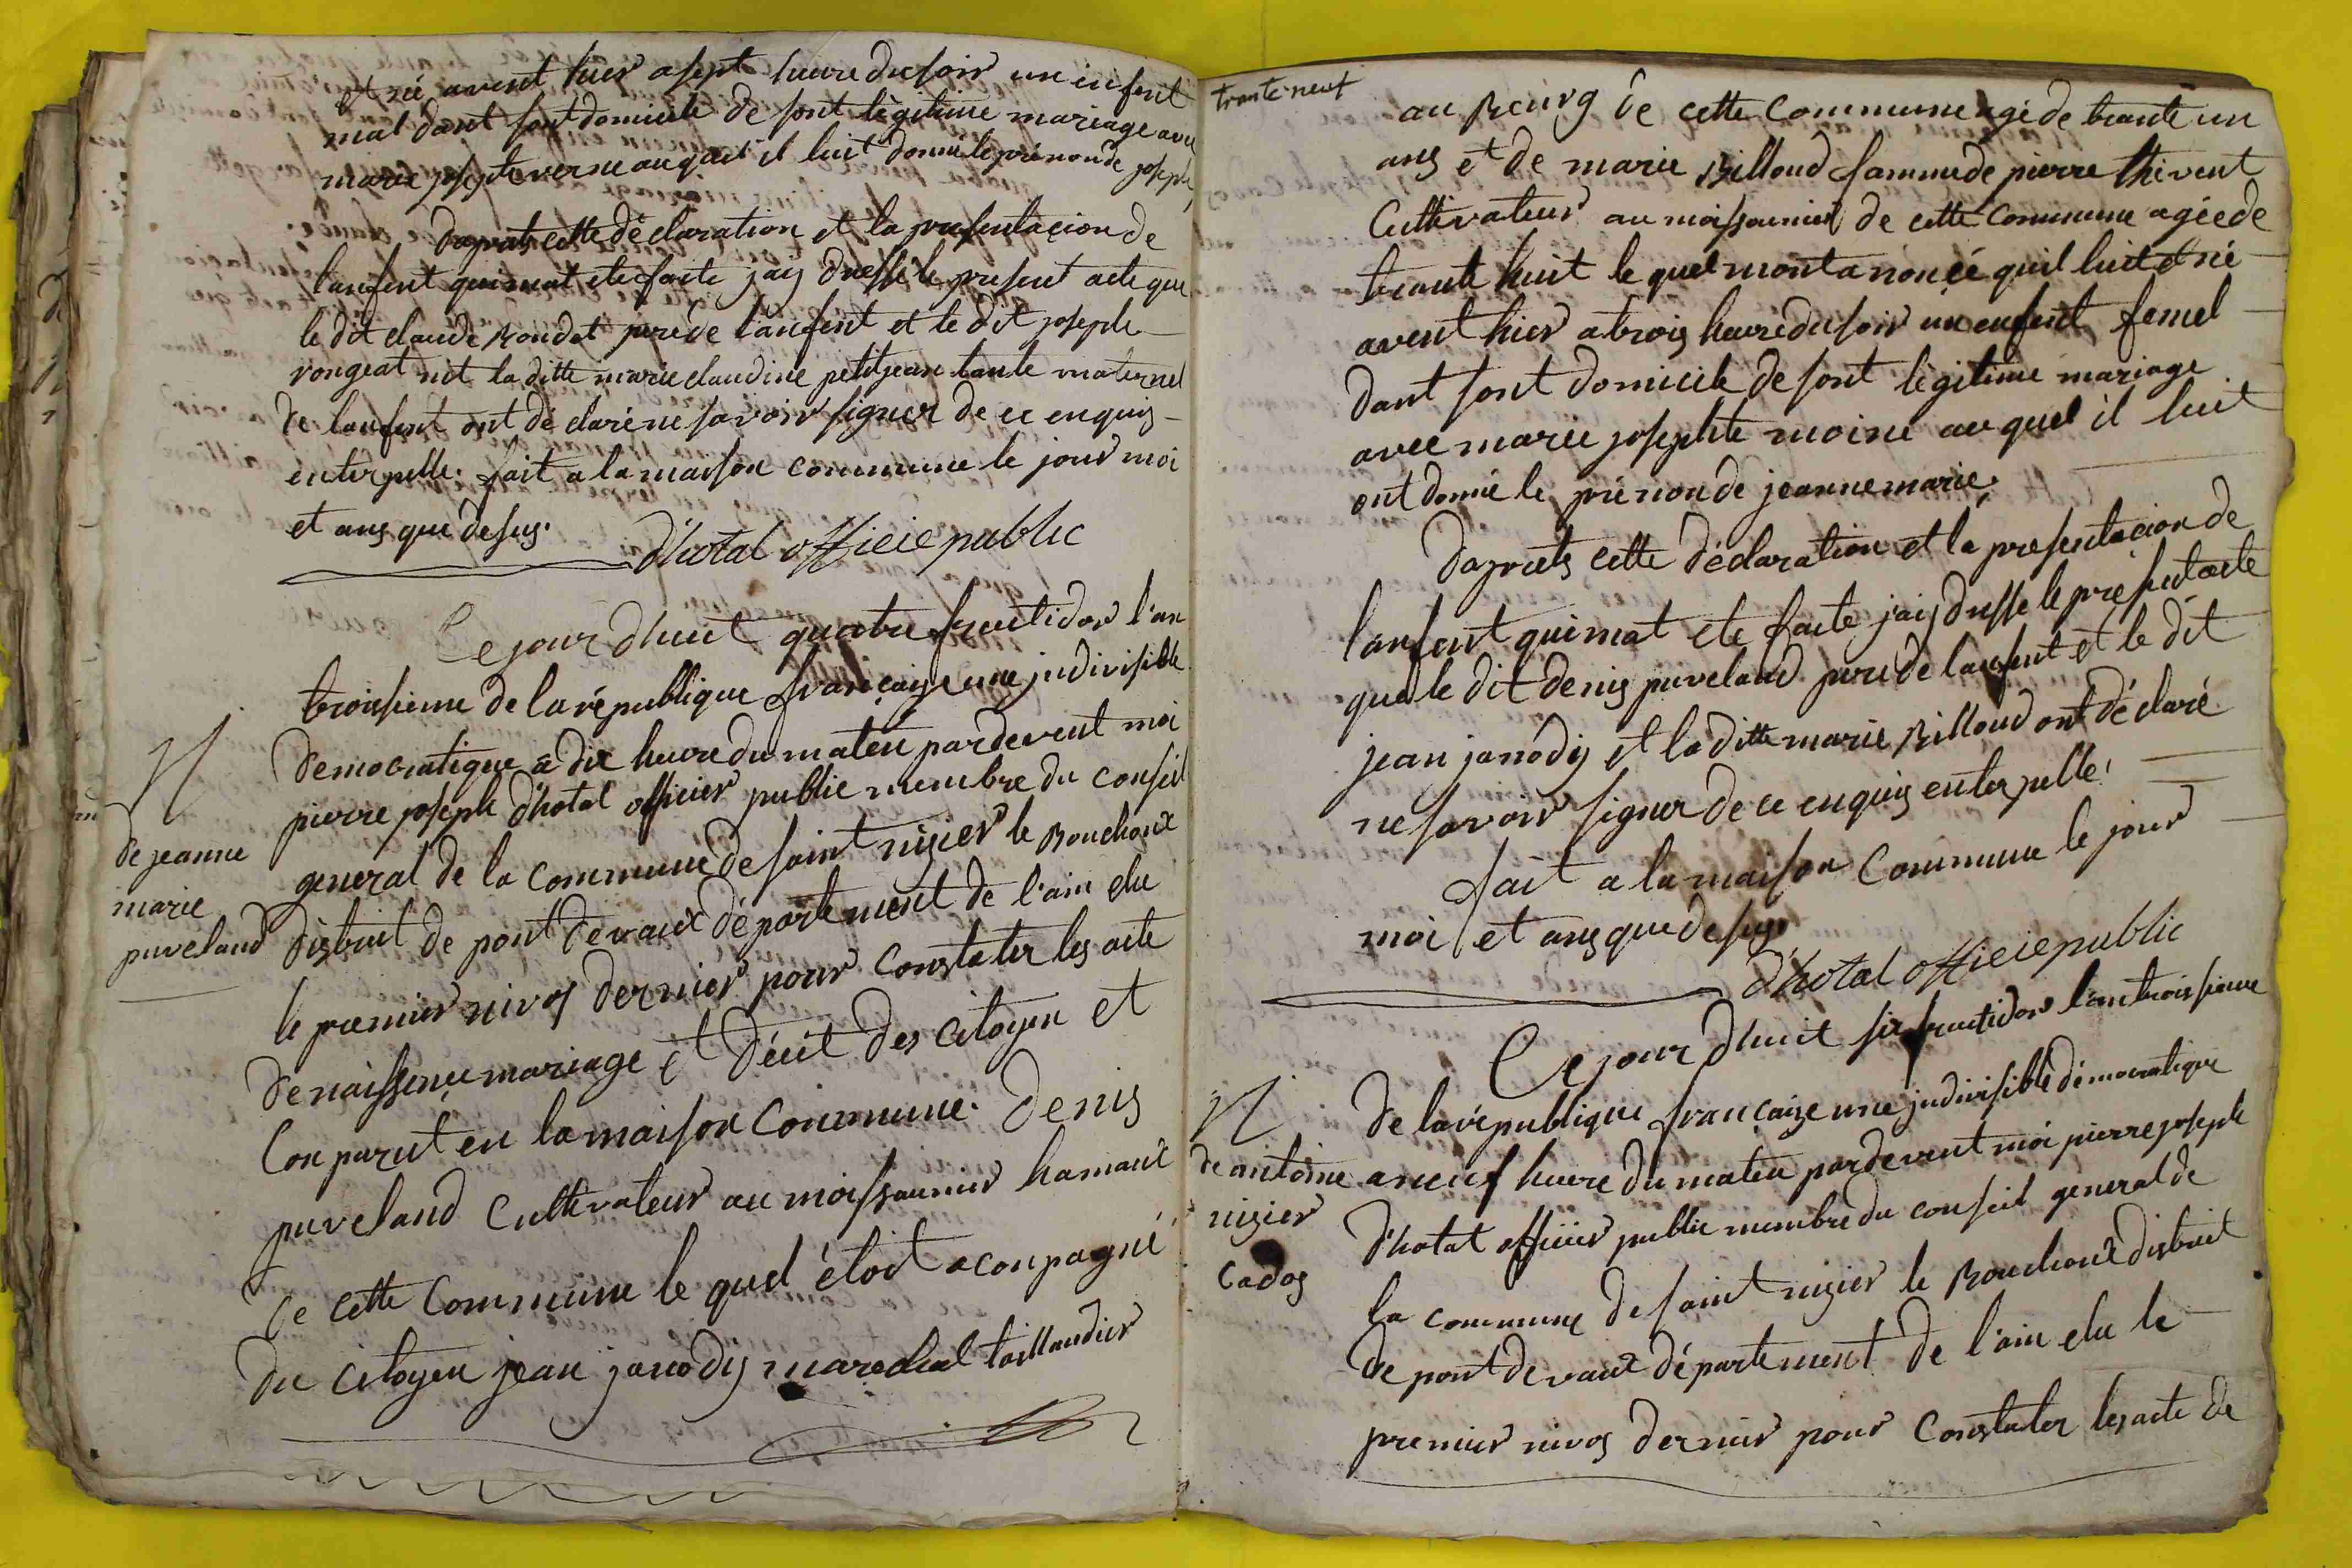 et né avent hier a sept heure du soir un enfent
mal dant sont domicile de sont légitime mariage avec
marie josepte verne auquel il luit donné le prénon de joseph
daprets cette déclaration et la presentacion de
lanfent qui mat ete faite jay dressé le present acte que
le dit claude Rondet pere de lanfent et le dit joseph
rongeat nit la ditte marie claudine petitjean tante maternel
de lanfent ont dé claré ne savoir signer de ce enquis
enterpelle. fait a la maison commune le jour moi
et ans que desus.
d'hotal officie public
Ce jour d'huit quatre fructidor l'an
troisieme de la république françaize une jndivisible
democratique a dix heure du maten pardevent moi
pierre joseph d'hotal officier public membre du conseil
general de la commune de saint nizier le Bouchoux
district de pont devaux département de l'ain elu
le premier nivos dernier pour constater les acte
de naissençe mariage et décit des citoyen et
Conparut en la maison Commune. Denis
puveland Cultivateur au moissonnier hamaux
de cette Commune le quel étoit aconpagné
du citoyen jean janodis marechal taillandier
N
de jeanne
marie
puveland
trante neuf
au Bourg de cette Commune agé de trante un
ans et de marie Billoud famme de pierre thivent
Cultivateur au moissonnier de cette commune agée de
trante huit le quel mont anonçé quil luit et né
avent hier a trois heure du soir un enfent femel
dant sont domicile de sont légitime mariage
avec marie josephte moine au quel il luit
ont donné le prénon de jeanne marie.
daprets cette déclaration et la presentacion de
lanfent qui mat ete faite jais dresse le present acte
que le dit denis puveland pere de lanfent et le dit
jean janodis et la ditte marie Billoud ont dé claré
ne savoir signer de ce enquis enterpelle.
fait a la maison Commune le jour
moi et ans que desus
d'hotal officie public
Ce jour d'huit six fructidor l'an troisieme
de la république françaize une jndivisible démocratique
a neuf heure du maten pardevent moi pierre joseph
d'hotal officier public membre du conseil general de
la commune de saint nizier le Bouchoux district
de pont devaux département de l'ain elu le
premier nivos dernier pour Constater les acte de
N
de antoine
nizier
Cados